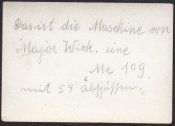 Das ist die Maschine von
Major Wick. eine
Me 109
mit 59 Abschüssen.